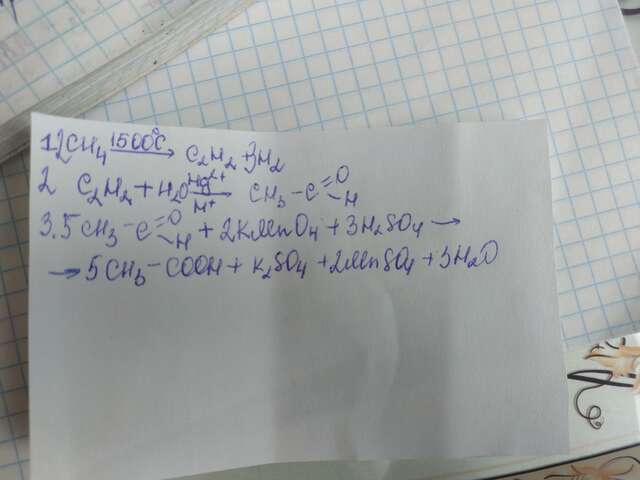 1 2CH₄ 1500°C → C₂H₂ + 3H₂
2 C₂H₂ + H₂O Hg²⁺ H⁺ → CH₃ – C =O – H
3. 5CH₃ – C =O – H + 2KMnO₄ + 3H₂SO₄ →
→ 5CH₃ – COOH + K₂SO₄ + 2MnSO₄ + 3H₂O